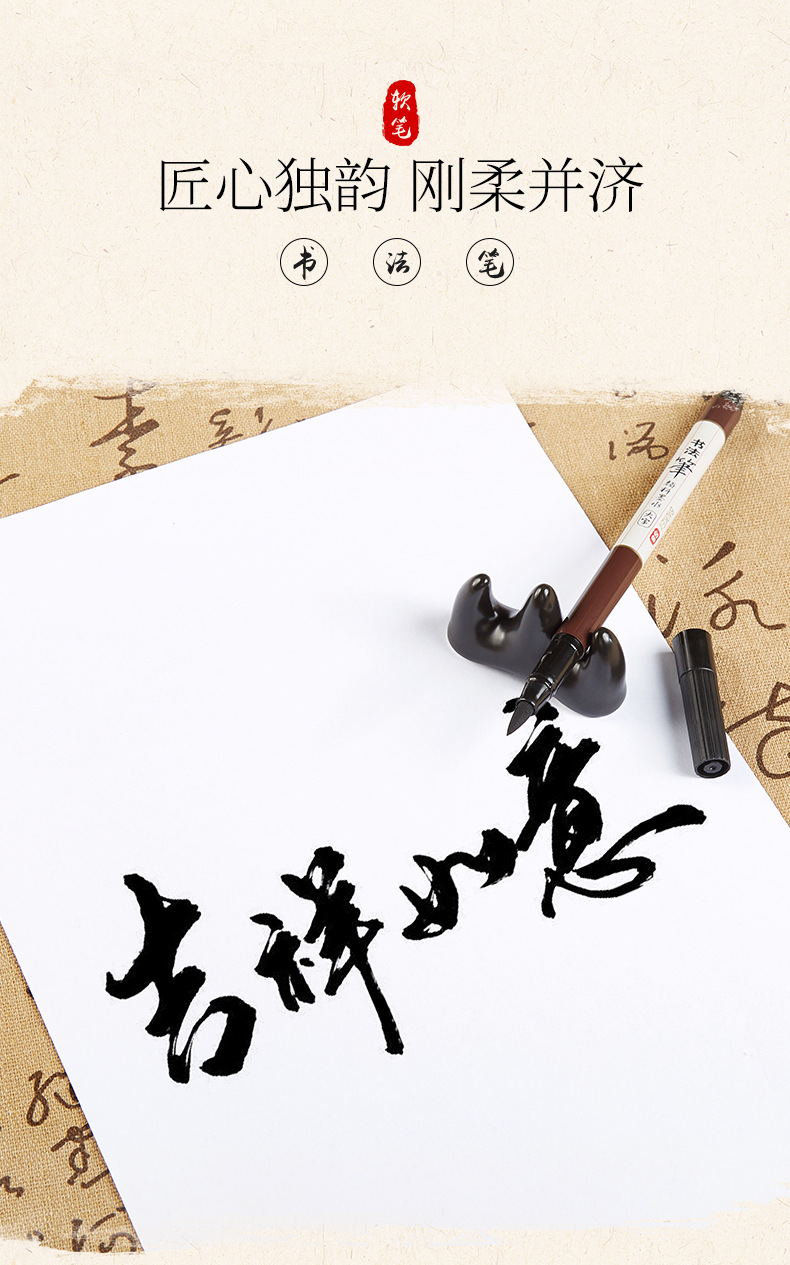 软笔
匠心独韵 刚柔并济
书 法 笔
书法筆
大字
吉祥如意